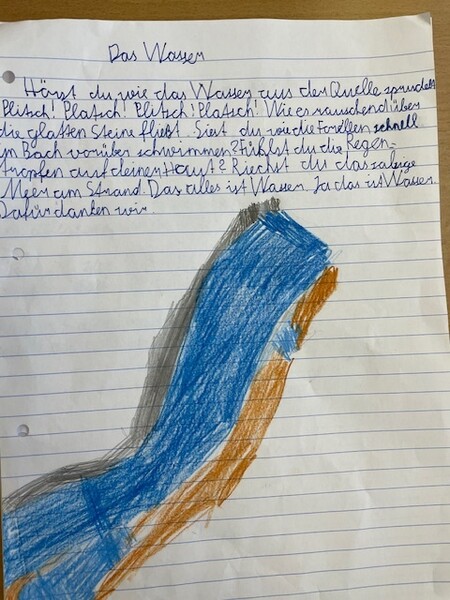 Das Wasser
Hörst du wie das Wasser aus der Quelle sprudelt
Plitsch! Platsch! Plitsch! Platsch! Wie es rauschend über
die glatten Steine fließt. Siest du wie die Forellen schnell
im Bach vorüber schwimmen? Fühlst du die Regen-
tropfen auf deiner Haut? Riechst du das salzige
Meer am Strand. Das alles ist Wasser. Ja das ist Wasser.
Dafür danken wir.